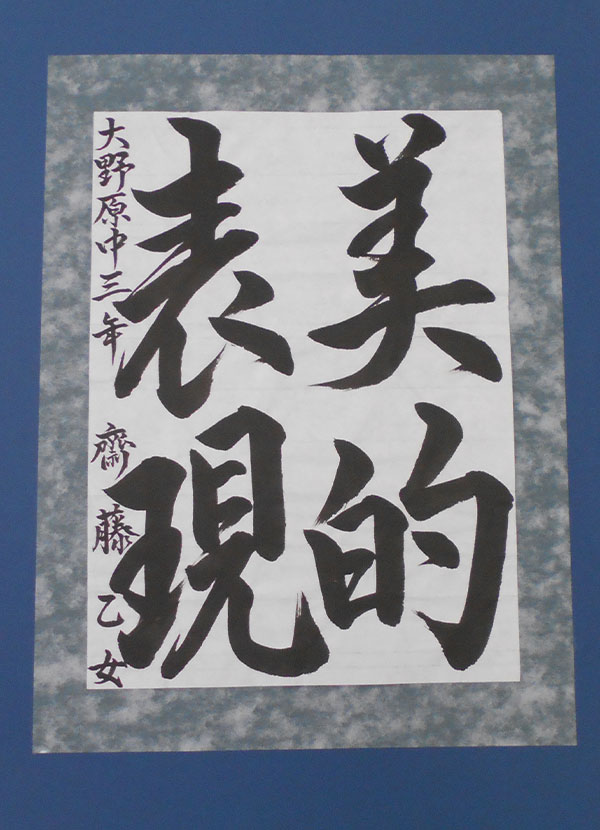 美的
表現
大野原中三年 齋藤乙女